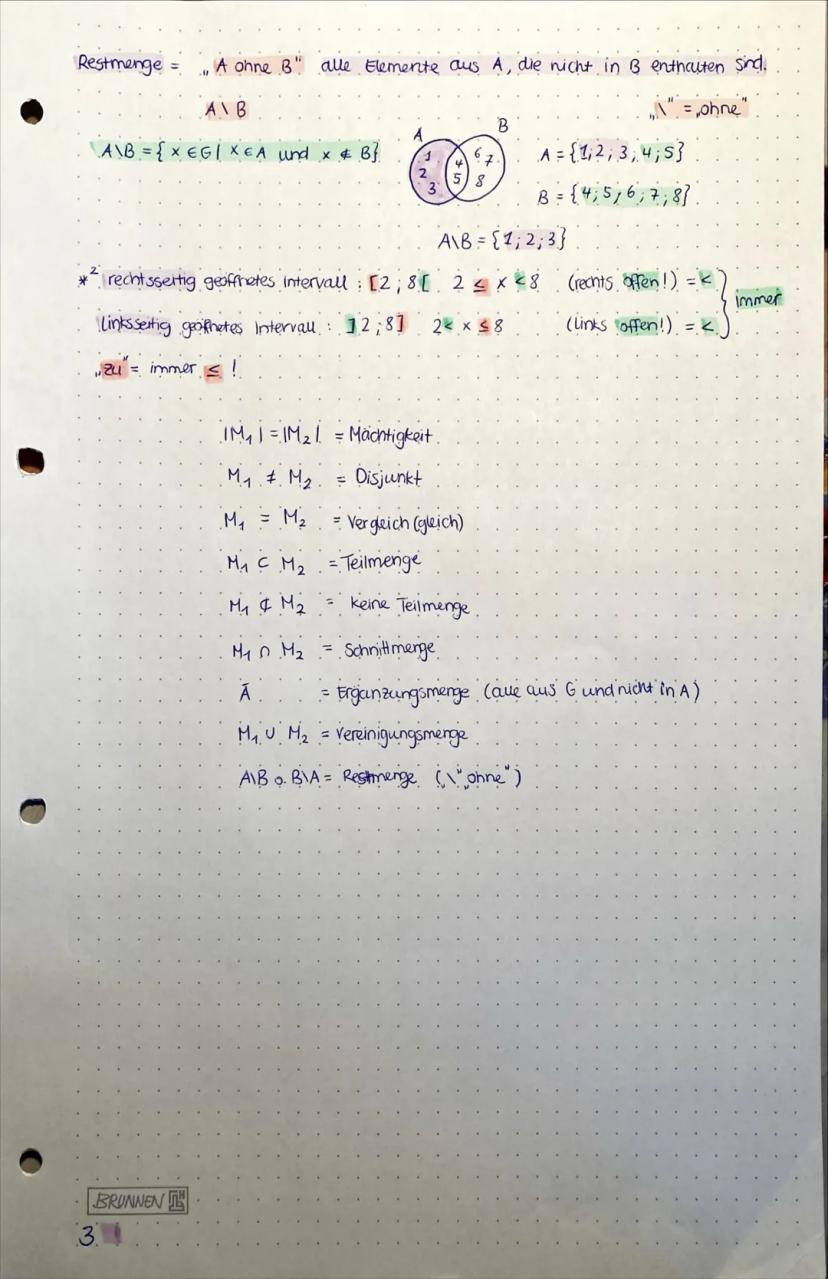 Restmenge = „A ohne B" alle Elemente aus A, die nicht in B enthalten sind.
A \ B „\" = „ohne"
A\B = { x ∈ G | x ∈ A und x ∉ B}
A B
1 2 3 4 5 6 7 8
A = {1; 2; 3; 4; 5}
B = {4; 5; 6; 7; 8}
A\B = {1; 2; 3}
*² rechtsseitig geöffnetes Intervall : [2 ; 8[ 2 ≤ x < 8 (rechts offen!) = <
linksseitig geöffnetes Intervall : ]2 ; 8] 2 < x ≤ 8 (links offen!) = <
immer
„zu" = immer ≤ !
|M₁| = |M₂| = Mächtigkeit
M₁ ≠ M₂ = Disjunkt
M₁ = M₂ = Vergleich (gleich)
M₁ ⊂ M₂ = Teilmenge
M₁ ⊄ M₂ = keine Teilmenge
M₁ ∩ M₂ = Schnittmenge
Ā = Ergänzungsmenge (alle aus G und nicht in A)
M₁ ∪ M₂ = Vereinigungsmenge
A\B o. B\A = Restmenge („\" „ohne")
BRUNNEN
3